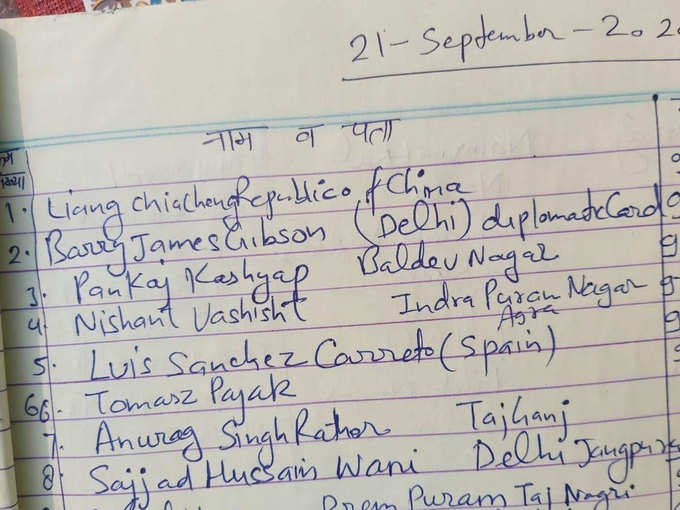 21-September-2.02
नाम व पता
1. Liang chiacheng Republic of China
2. Barry James Gibson (Delhi) diplomatic Card
3. Pankaj Kashyap Baldev Nagar
4. Nishant Vashisht Indra Puram Nagar
Agra
5. Luis Sanchez Carreto (Spain)
66. Tomasz Pajak
7. Anurag Singh Rathor Tajhanj
8. Sajjad Hussain Wani Delhi
Prem Puram Taj Nagri